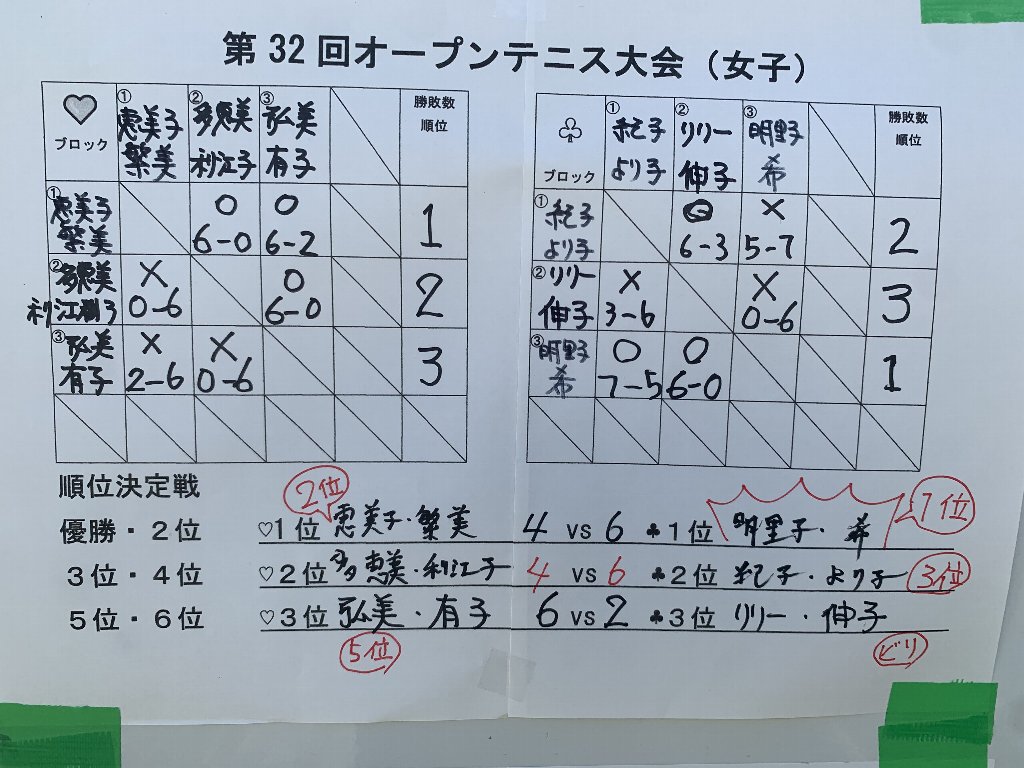 第32回オープンテニス大会（女子）
♡ ① ② ③ 勝敗数
恵美子 多恵美 弘美 順位
ブロック 繁美 利江子 有子
① 恵美子 ○ ○ 1
繁美 6-0 6-2
② 多恵美 × ○ 2
利江子 0-6 6-0
③ 弘美 × × 3
有子 2-6 0-6
♧ ① ② ③ 勝敗数
紀子 リリー 明里子 順位
ブロック より子 伸子 希
① 紀子 ○ × 2
より子 6-3 5-7
② リリー × × 3
伸子 3-6 0-6
③ 明里子 ○ ○ 1
希 7-5 6-0
順位決定戦
2位 1位
優勝・2位 ♡1位 恵美子・繁美 4 vs 6 ♣1位 明里子・希
3位・4位 ♡2位 多恵美・利江子 4 vs 6 ♣2位 紀子・より子 3位
5位・6位 ♡3位 弘美・有子 6 vs 2 ♣3位 リリー・伸子
5位 ビリ